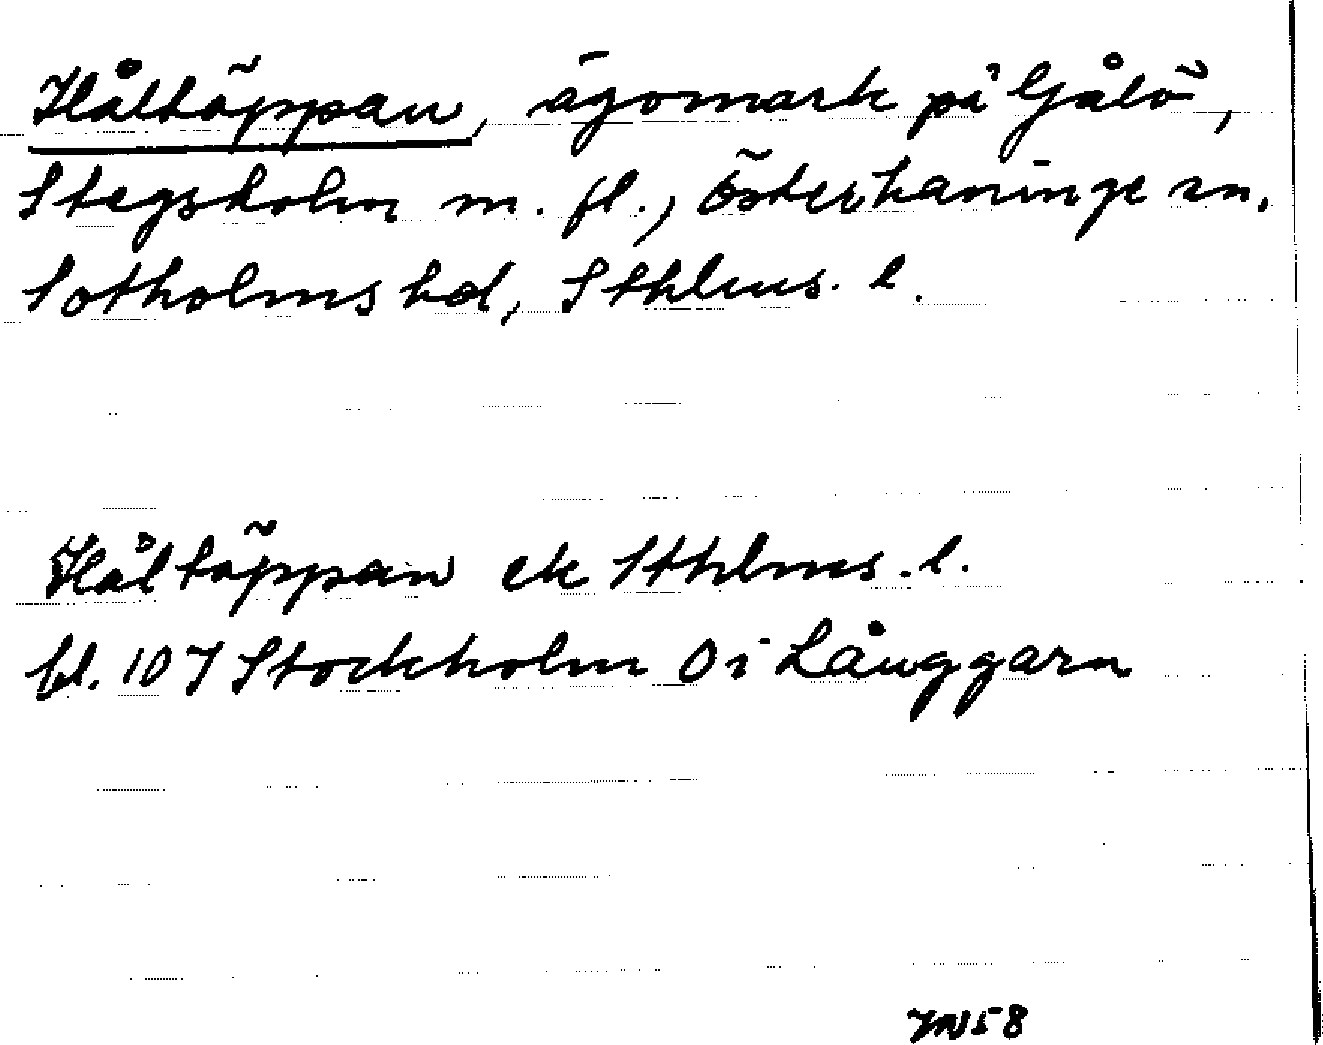 Håltäppan, ägomark på Gålö,
Stegsholm m. fl., Österhaninge sn,
Sotholms hd, Sthlms. l.
Håltäppan ek Sthlms. l.
bl. 107 Stockholm O i Långgarn